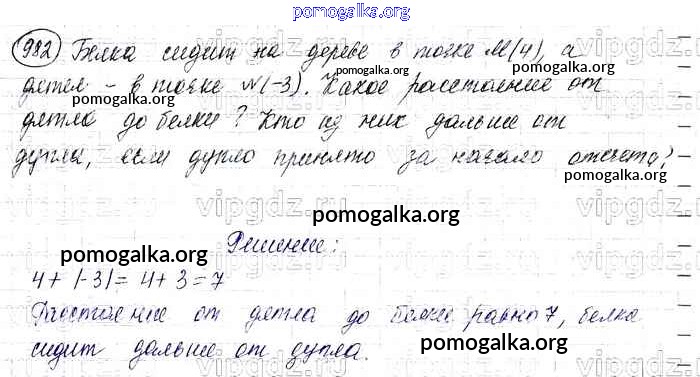 pomogalka.org
982 Белка сидит на дереве в точке M(4), а
дятел - в точке N(-3). Какое расстояние от
pomogalka.org
pomogalka.org
дятла до белки? Кто из них дальше от
дупла, если дупло принято за начало отсчета?
pomogalka.org
pomogalka.org
Решение:
pomogalka.org
4 + |-3| = 4 + 3 = 7
pomogalka.org
Расстояние от дятла до белки равно 7, белка
сидит дальше от дупла.
pomogalka.org
pomogalka.org